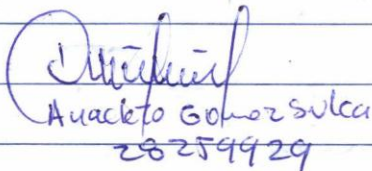 Anacleto Gomez Sulca
28259929